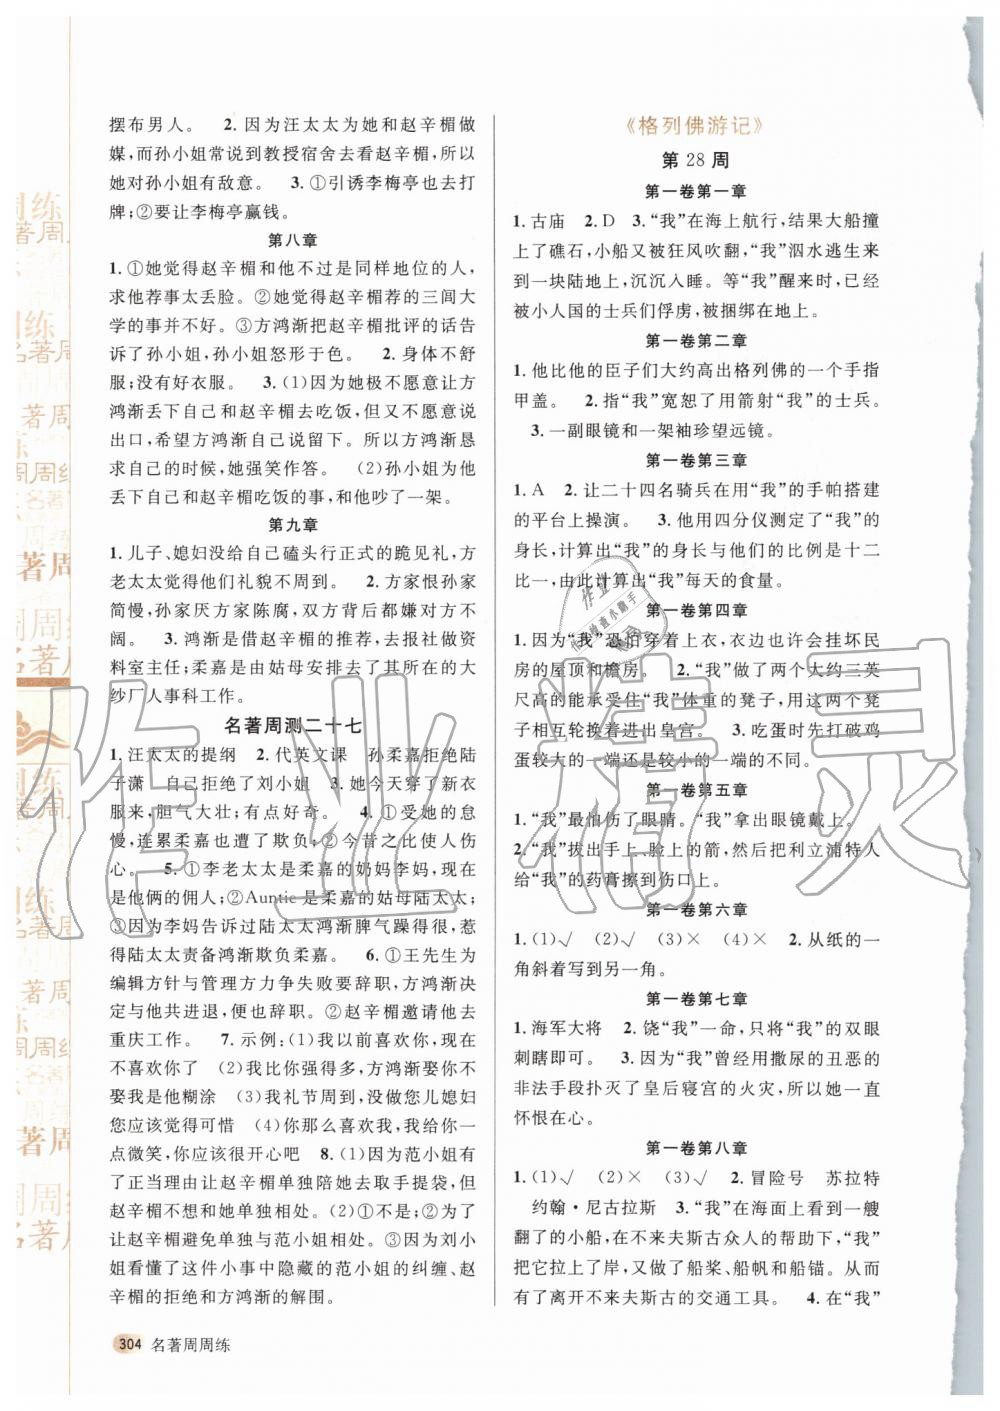 摆布男人。　2. 因为汪太太为她和赵辛楣做
媒,而孙小姐常说到教授宿舍去看赵辛楣,所以
她对孙小姐有敌意。　3. ①引诱李梅亭也去打
牌;②要让李梅亭赢钱。
第八章
1. ①她觉得赵辛楣和他不过是同样地位的人,
求他荐事太丢脸。②她觉得赵辛楣荐的三闾大
学的事并不好。③方鸿渐把赵辛楣批评的话告
诉了孙小姐,孙小姐怒形于色。　2. 身体不舒
服;没有好衣服。　3. (1)因为她极不愿意让方
鸿渐丢下自己和赵辛楣去吃饭,但又不愿意说
出口,希望方鸿渐自己说留下。所以方鸿渐征
求自己的时候,她强笑作答。　(2)孙小姐为他
丢下自己和赵辛楣吃饭的事,和他吵了一架。
第九章
1. 儿子、媳妇没给自己磕头行正式的跪见礼,方
老太太觉得他们礼貌不周到。　2. 方家恨孙家
简慢,孙家厌方家陈腐,双方背后都嫌对方不
阔。　3. 鸿渐是借赵辛楣的推荐,去报社做资
料室主任;柔嘉是由姑母安排去了其所在的大
纱厂人事科工作。
名著周测二十七
1. 汪太太的提纲　2. 代英文课　孙柔嘉拒绝陆
子潇　自己拒绝了刘小姐　3. 她今天穿了新衣
服来,胆气大壮;有点好奇。　4. ①受她的怠
慢,连累柔嘉也遭了欺负;②今昔之比使他伤
心。　5. ①李老太太是柔嘉的奶妈李妈,现在
是他俩的佣人;②Auntie是柔嘉的姑母陆太太;
③因为李妈告诉过陆太太鸿渐脾气躁得很,惹
得陆太太责备鸿渐欺负柔嘉。　6. ①王先生为
编辑方针与管理方力争失败要辞职,方鸿渐决
定与他共进退,便也辞职。②赵辛楣邀请他去
重庆工作。　7. 示例:(1)我以前喜欢你,但现
在不喜欢了　(2)我比你强得多,方鸿渐不娶你
娶我是他糊涂　(3)我礼节周到,没做您儿媳妇
您应该觉得可惜　(4)你那么喜欢我,我只有一
点微笑,你还很开心吧　8. (1)因为范小姐有
了正当理由让赵辛楣单独陪她去取手提袋,但
赵辛楣不想和她单独相处。(2)①不是;②为了让
赵辛楣避免单独与范小姐相处。③因为刘小
姐看懂了这件小事中隐藏的范小姐的纠缠、赵
辛楣的拒绝和方鸿渐的解围。
304 名著周周练
《格列佛游记》
第 28 周
第一卷第一章
1. 古庙　2. D　3. “我”在海上航行,结果大船撞
上了礁石,小船又被狂风吹翻,“我”泅水逃生来
到一块陆地上,沉沉入睡。等“我”醒来时,已经
被小人国的士兵们俘虏,被捆绑在地上。
第一卷第二章
1. 他比他的臣子们大约高出格列佛的一个手指
甲盖。　2. 指“我”宽恕了用箭射“我”的士兵。
3. 一副眼镜和一架袖珍望远镜。
第一卷第三章
1. A　2. 让二十四名骑兵在用“我”的手帕搭建
的平台上操演。　3. 他用四分仪测定了“我”的
身长,计算出“我”的身长与他们的比例是十二
比一,由此计算出“我”每天的食量。
第一卷第四章
1. 因为“我”恐怕穿着上衣,衣边也许会挂坏民
房的屋顶和檐房。　2. “我”做了两个大约三英
尺高的能承受住“我”体重的凳子,用这两个凳
子相互轮换着进出皇宫。　3. 吃蛋时先打破鸡
蛋较大的一端还是较小的一端的不同。
第一卷第五章
1. “我”最怕伤了眼睛。“我”拿出眼镜戴上。
2. “我”拔出手上、脸上的箭,然后把利立浦特人
给“我”的药膏擦到伤口上。
第一卷第六章
1. (1)√　(2)√　(3)×　(4)×　2. 从纸的一
角斜着写到另一角。
第一卷第七章
1. 海军大将　2. 饶“我”一命,只将“我”的双眼
刺瞎即可。　3. 因为“我”曾经用撒尿的丑恶的
非法手段扑灭了皇后寝宫的火灾,所以她一直
怀恨在心。
第一卷第八章
1. (1)√　(2)×　(3)√　2. 冒险号　苏拉特
约翰·尼古拉斯　3. “我”在海面上发现一艘
翻了的小船,在不来夫斯古众人的帮助下,“我”
把它拉上了岸,“我”又做了船桨、船帆和船锚。这样就
有了离开不来夫斯古的交通工具。　4. 在“我”
作业精灵